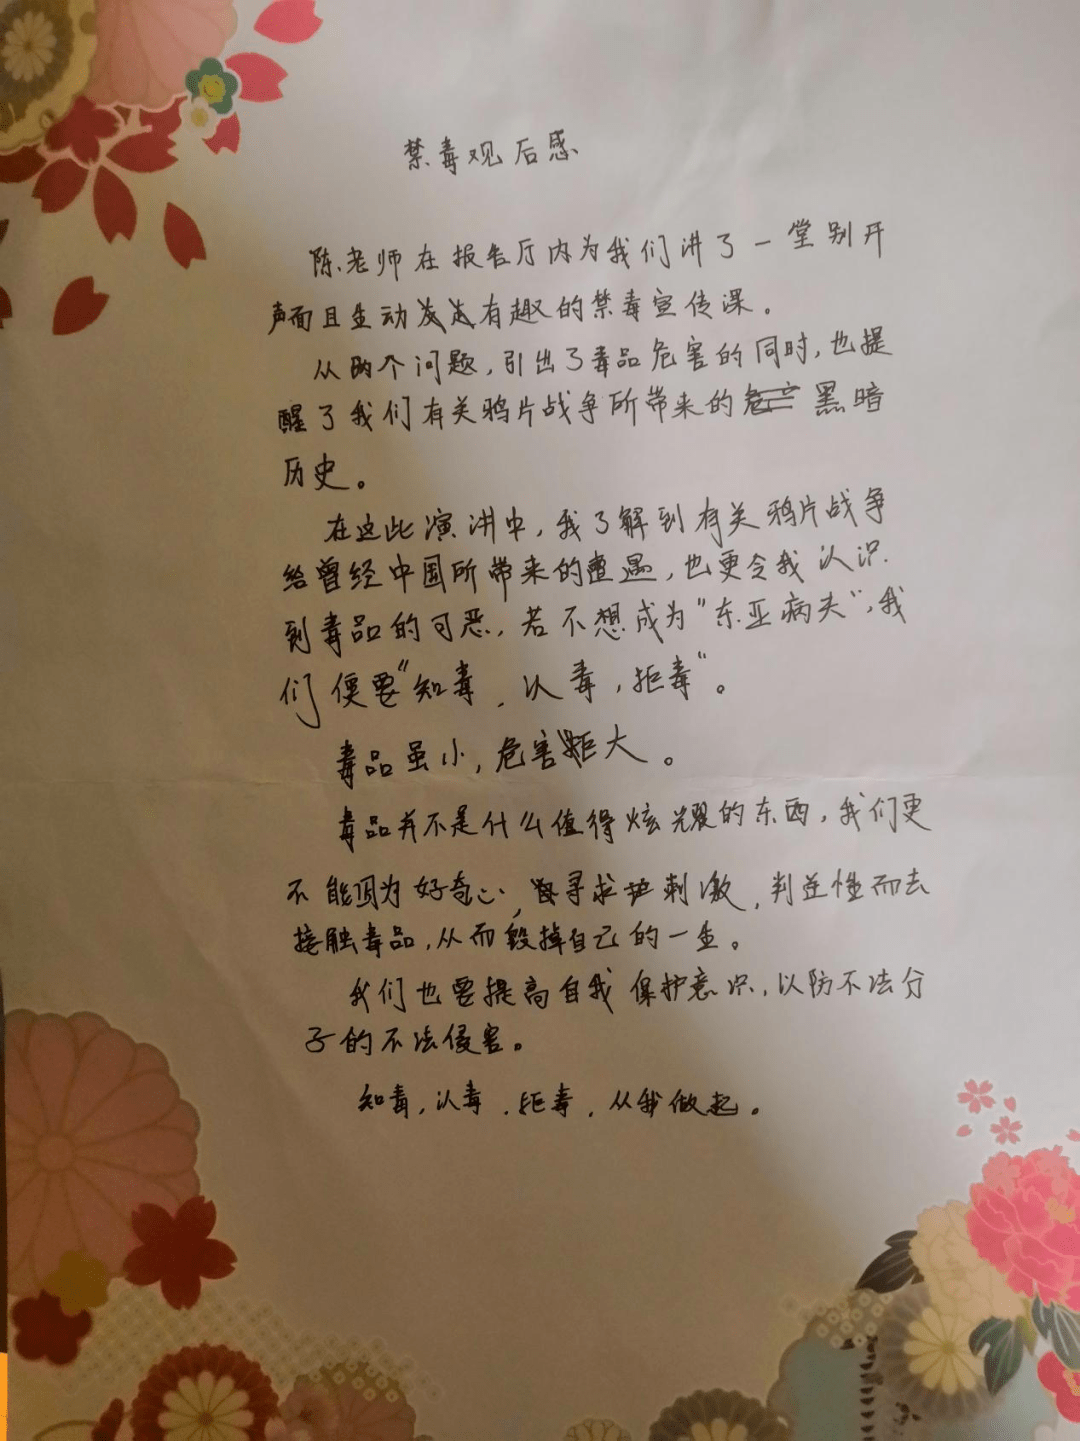 禁毒观后感
陈老师在报告厅内为我们讲了一堂别开
声面且生动有趣的禁毒宣传课。
从两个问题,引出了毒品危害的同时,也提
醒了我们有关鸦片战争所带来的黑暗
历史。
在这此演讲中,我了解到有关鸦片战争
给曾经中国所带来的遭遇,也更令我认识
到毒品的可恶,若不想成为“东亚病夫”,我
们便要“知毒,认毒,拒毒”。
毒品虽小,危害距大。
毒品并不是什么值得炫耀的东西,我们更
不能因为好奇心,寻求刺激,判逆性而去
接触毒品,从而毁掉自己的一生。
我们也要提高自我保护意识,以防不法分
子的不法侵害。
知毒,认毒,拒毒,从我做起。